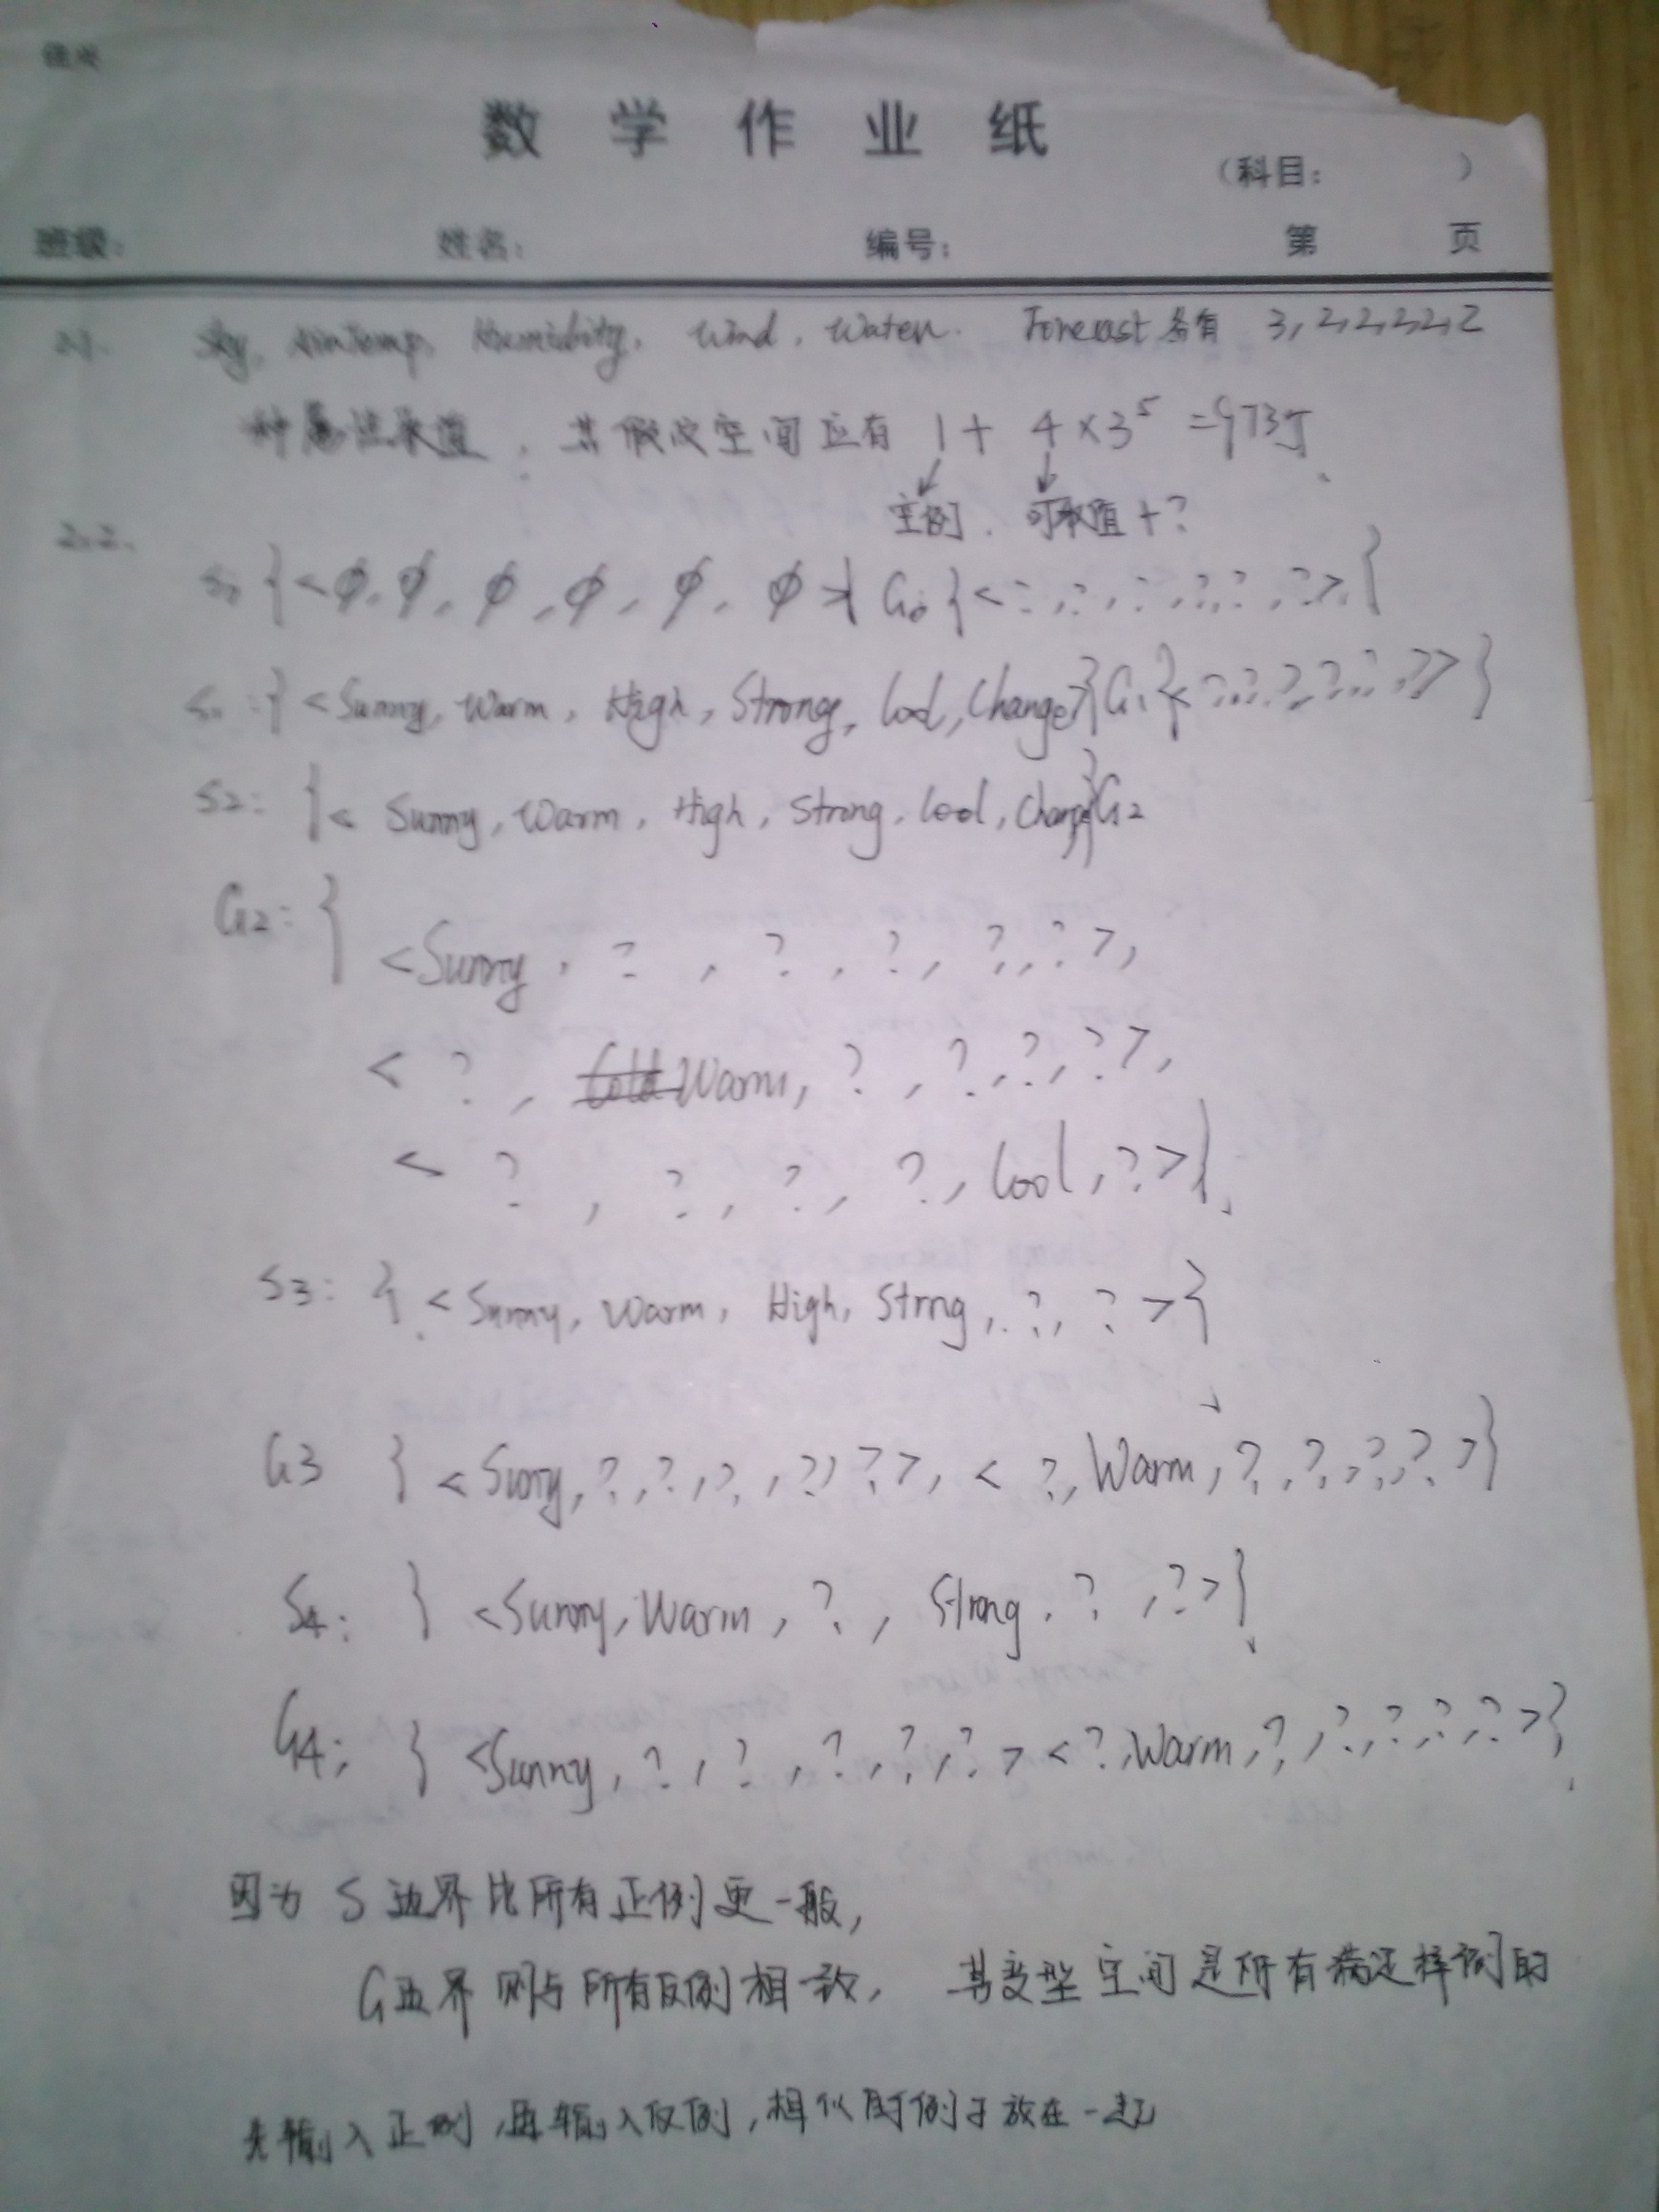 数 学 作 业 纸
(科目: )
班级: 姓名: 编号: 第 页
2.1. Sky, AirTemp, Humidity, Wind, Water. Forecast 各有 3,2,2,2,2,2
种属性取值, 其假设空间应有 1 + 4×3⁵ =973个.
空例. 可取值+?
2.2.
S₀ {<φ, φ, φ, φ, φ, φ>} G₀ {<?, ?, ?, ?, ?, ?>}
S₁: {<Sunny, Warm, High, Strong, Cool, Change>} G₁ {<?, ?, ?, ?, ?, ?>}
S2: {< Sunny, Warm, High, Strong, Cool, Change>} G2
G2: {
<Sunny, ?, ?, ?, ?, ?>,
< ?, Warm, ?, ?, ?, ?>,
< ?, ?, ?, ?, Cool, ?>}.
S3: {<Sunny, Warm, High, Strng, ?, ?>}
G3 {<Suny, ?, ?, ?, ?, ?>, < ?, Warm, ?, ?, ?, ?>}
S4: {<Sunny, Warm, ?, Strong, ?, ?>}.
G4: {<Sunny, ?, ?, ?, ?, ?> <?, Warm, ?, ?, ?, ?, ?>}.
因为 S 边界比所有正例更一般,
G边界则与所有反例相一致, 其变型空间是所有满足样例的
先输入正例, 再输入反例, 相似的例子放在一起